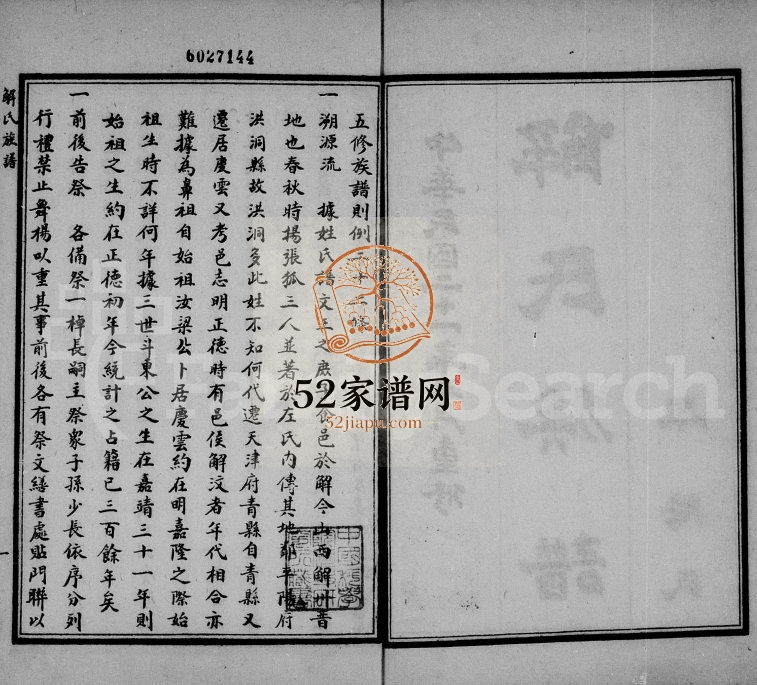 6027144
解氏族譜
五修族譜則例二十二條
一溯源流 據姓氏譜文王之庶子食邑於解今山西解州晋
地也春秋時揚張狐三人並著於左氏內傳其地鄰平陽府
洪洞縣故洪洞多此姓不知何代遷天津府青縣自青縣又
遷居慶雲又考邑志明正德時有邑侯解汶者年代相合亦
難據為鼻祖自始祖汝梁公卜居慶雲約在明嘉隆之際始
祖生時不詳何年據三世斗東公之生在嘉靖三十一年則
始祖之生約在正德初年今統計之占籍已三百餘年矣
一前後告祭 各備祭一棹長嗣主祭衆子孫少長依序分列
行禮禁止舞楊以重其事前後各有祭文繕書處貼門聯以
一
52家谱网
52jiapu.com
Search
中華民國二十一年
重修
解氏族譜